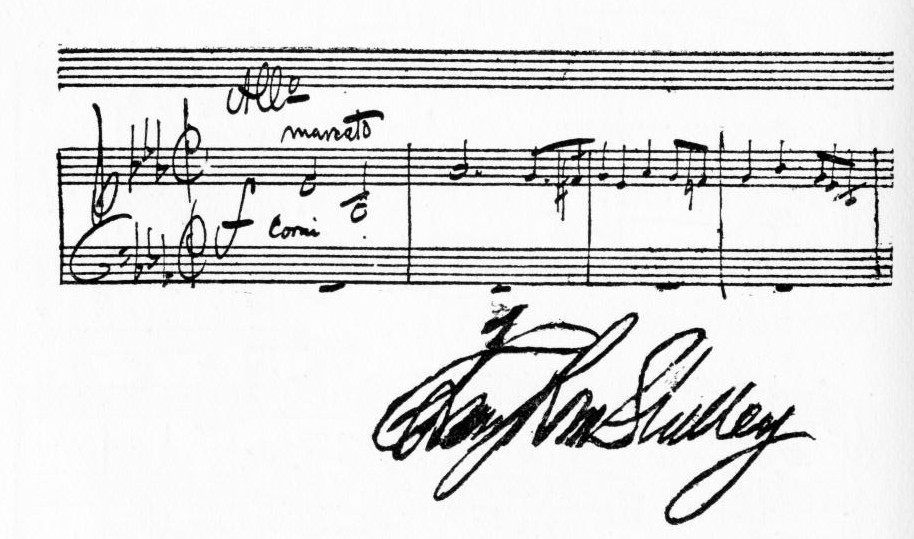 Allo
marcato
f
Corni
Harry Rowe Shelley